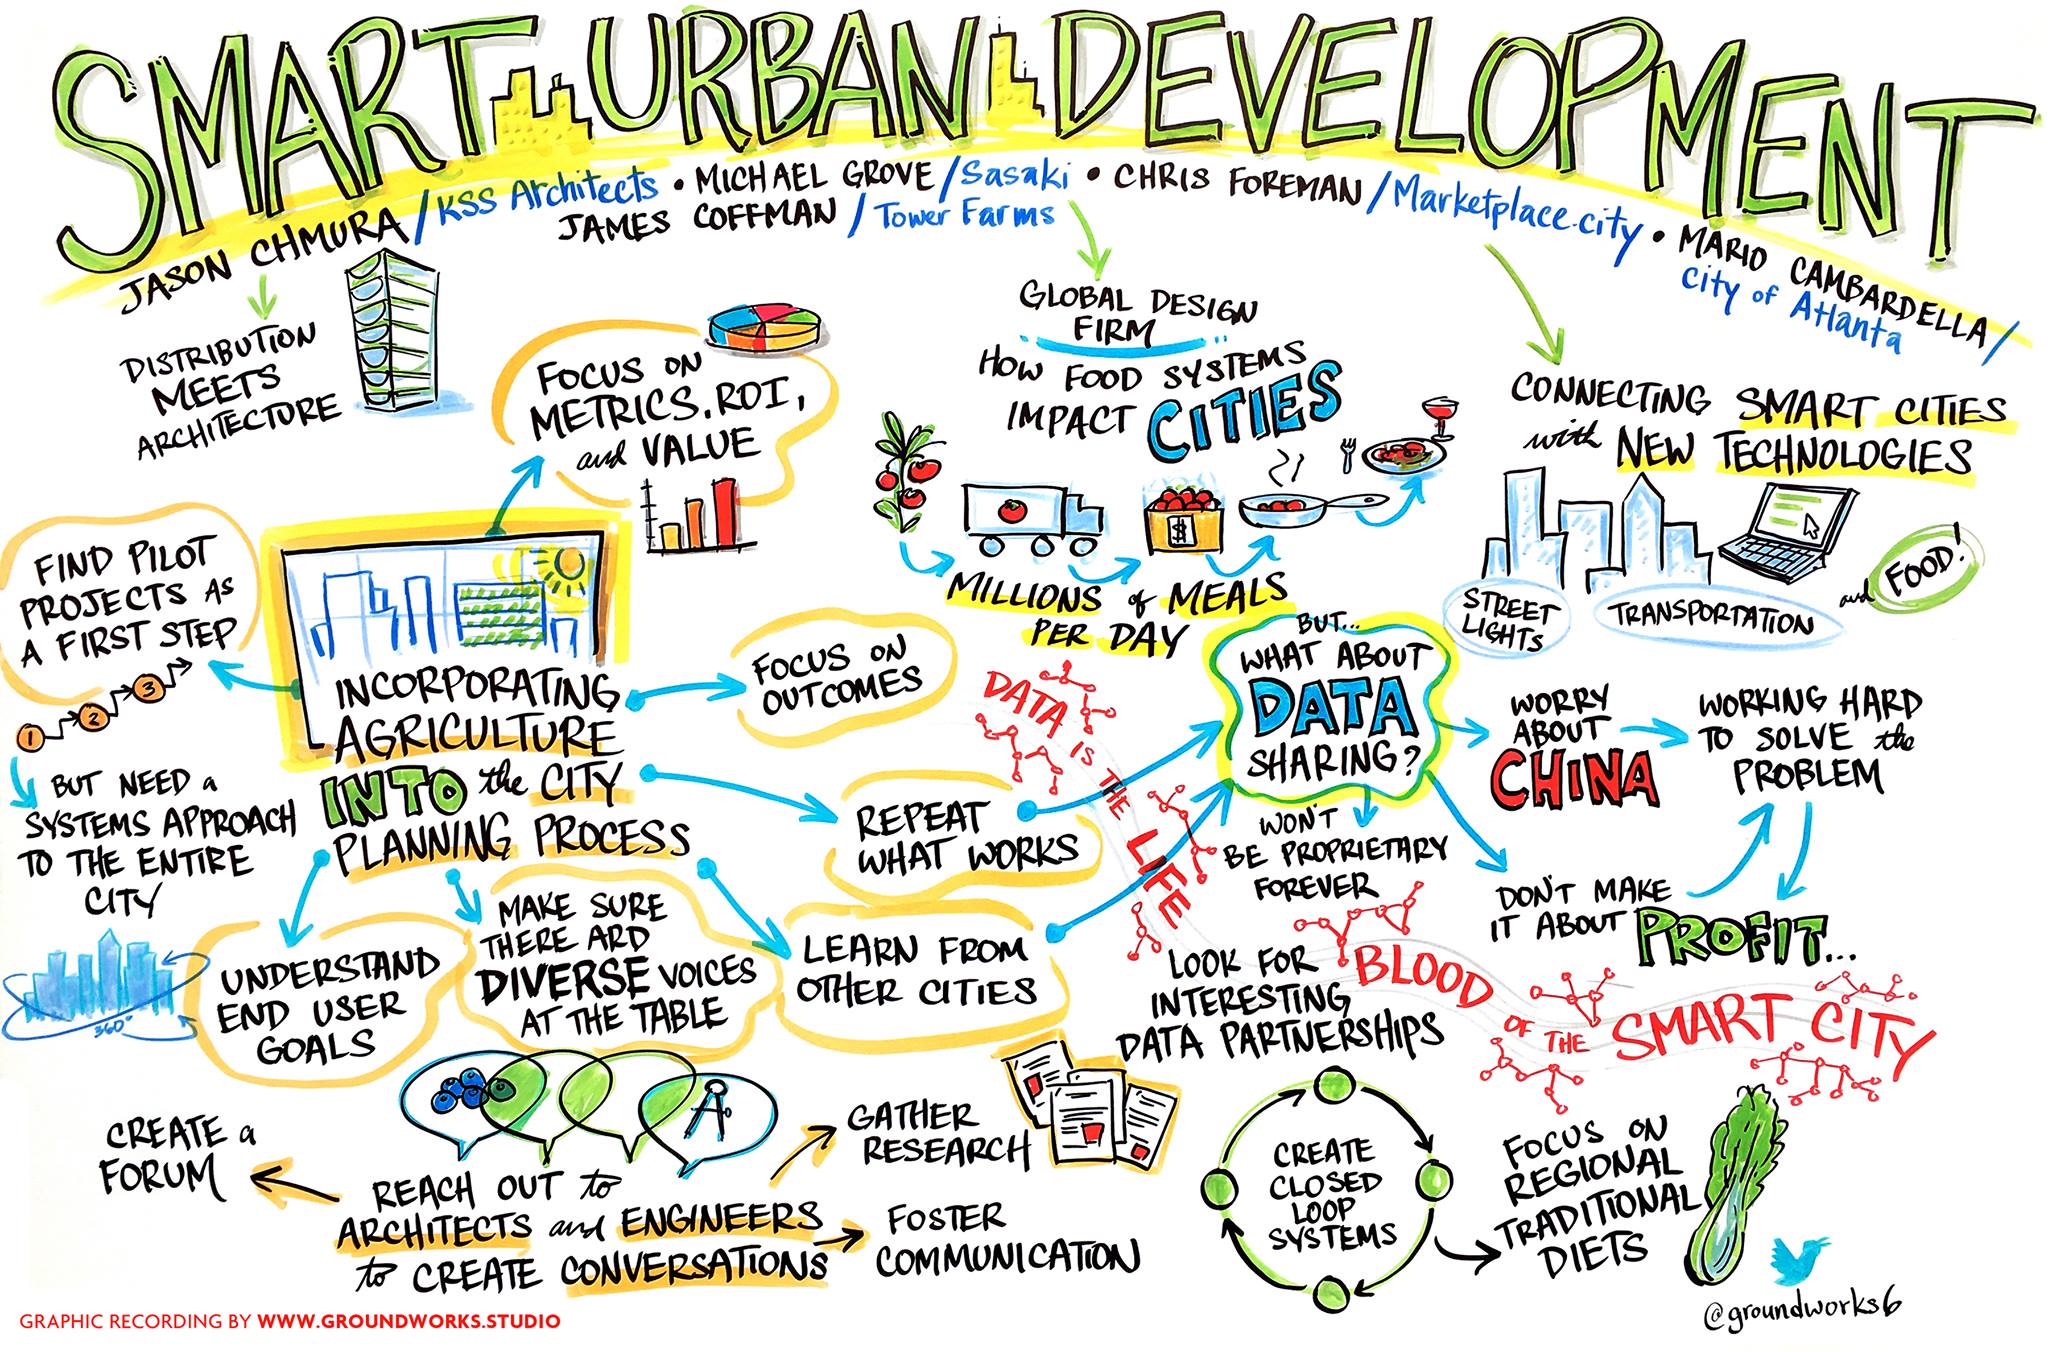 SMART URBAN DEVELOPMENT
JASON CHMURA / KSS Architects • MICHAEL GROVE / Sasaki • CHRIS FOREMAN / Marketplace.city • MARIO CAMBARDELLA /
JAMES COFFMAN / Tower Farms
City of Atlanta
DISTRIBUTION
MEETS
ARCHITECTURE
FOCUS ON
METRICS, ROI,
and VALUE
GLOBAL DESIGN
FIRM
HOW FOOD SYSTEMS
IMPACT CITIES
$
MILLIONS of MEALS
PER DAY
CONNECTING SMART CITIES
with NEW TECHNOLOGIES
STREET
LIGHTS
TRANSPORTATION
and FOOD!
FIND PILOT
PROJECTS AS
A FIRST STEP
1
2
3
BUT NEED a
SYSTEMS APPROACH
TO THE ENTIRE
CITY
360°
INCORPORATING
AGRICULTURE
INTO the CITY
PLANNING PROCESS
FOCUS ON
OUTCOMES
REPEAT
WHAT WORKS
LEARN FROM
OTHER CITIES
MAKE SURE
THERE ARD
DIVERSE VOICES
AT THE TABLE
UNDERSTAND
END USER
GOALS
BUT...
WHAT ABOUT
DATA
SHARING?
WORRY
ABOUT
CHINA
WORKING HARD
TO SOLVE the
PROBLEM
WON'T
BE PROPRIETARY
FOREVER
DON'T MAKE
IT ABOUT PROFIT...
DATA IS THE LIFE BLOOD OF THE SMART CITY
LOOK FOR
INTERESTING
DATA PARTNERSHIPS
CREATE a
FORUM
REACH OUT to
ARCHITECTS and ENGINEERS
to CREATE CONVERSATIONS
GATHER
RESEARCH
FOSTER
COMMUNICATION
CREATE
CLOSED
LOOP
SYSTEMS
FOCUS ON
REGIONAL
TRADITIONAL
DIETS
@groundworks6
GRAPHIC RECORDING BY WWW.GROUNDWORKS.STUDIO